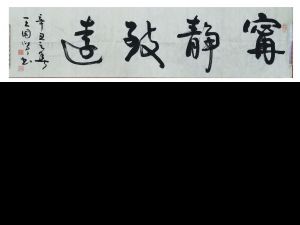 寧靜致遠
辛丑之夏
王國